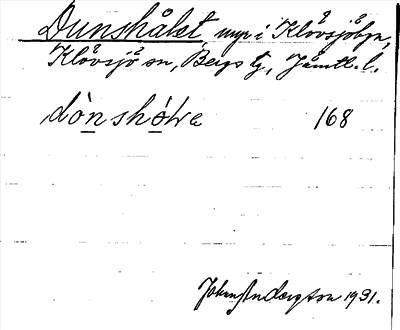 Dunshålet, myr i Klövsjöbyn,
Klövsjö sn, Bergs tg, Jämtl. l.
dònshòlɛ 168
John Anderzton 1931.